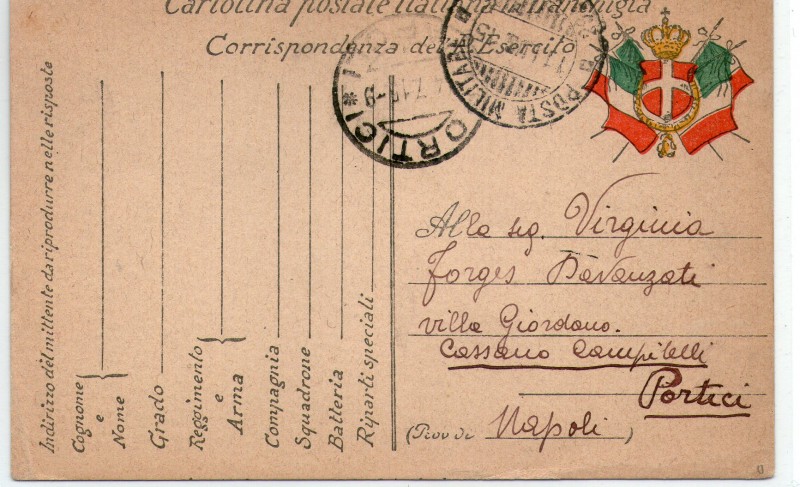 Cartolina postale italiana in franchigia
Corrispondenza del R. Esercito
POSTA MILITARE
PORTICI
Indirizzo del mittente da riprodurre nelle risposte
Cognome e Nome
Grado
Reggimento e Arma
Compagnia
Squadrone
Batteria
Riparti speciali
Alla sig. Virginia
Forges Davanzati
villa Giordano.
Cassano Campitelli
Portici
(Prov di Napoli)